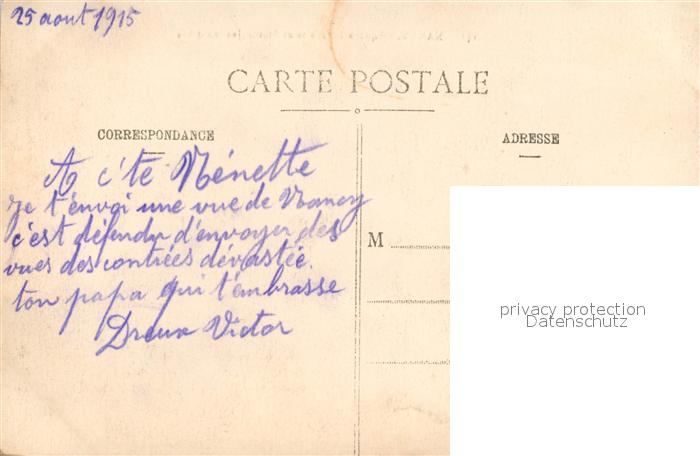 25 aout 1915
CARTE POSTALE
CORRESPONDANCE
ADRESSE
A c'te Nénette
je t'envoi une vue de Nancy
c'est défendu d'envoyer des
vues des contrées dévastée.
ton papa qui t'embrasse
Dreux Victor
M
privacy protection
Datenschutz